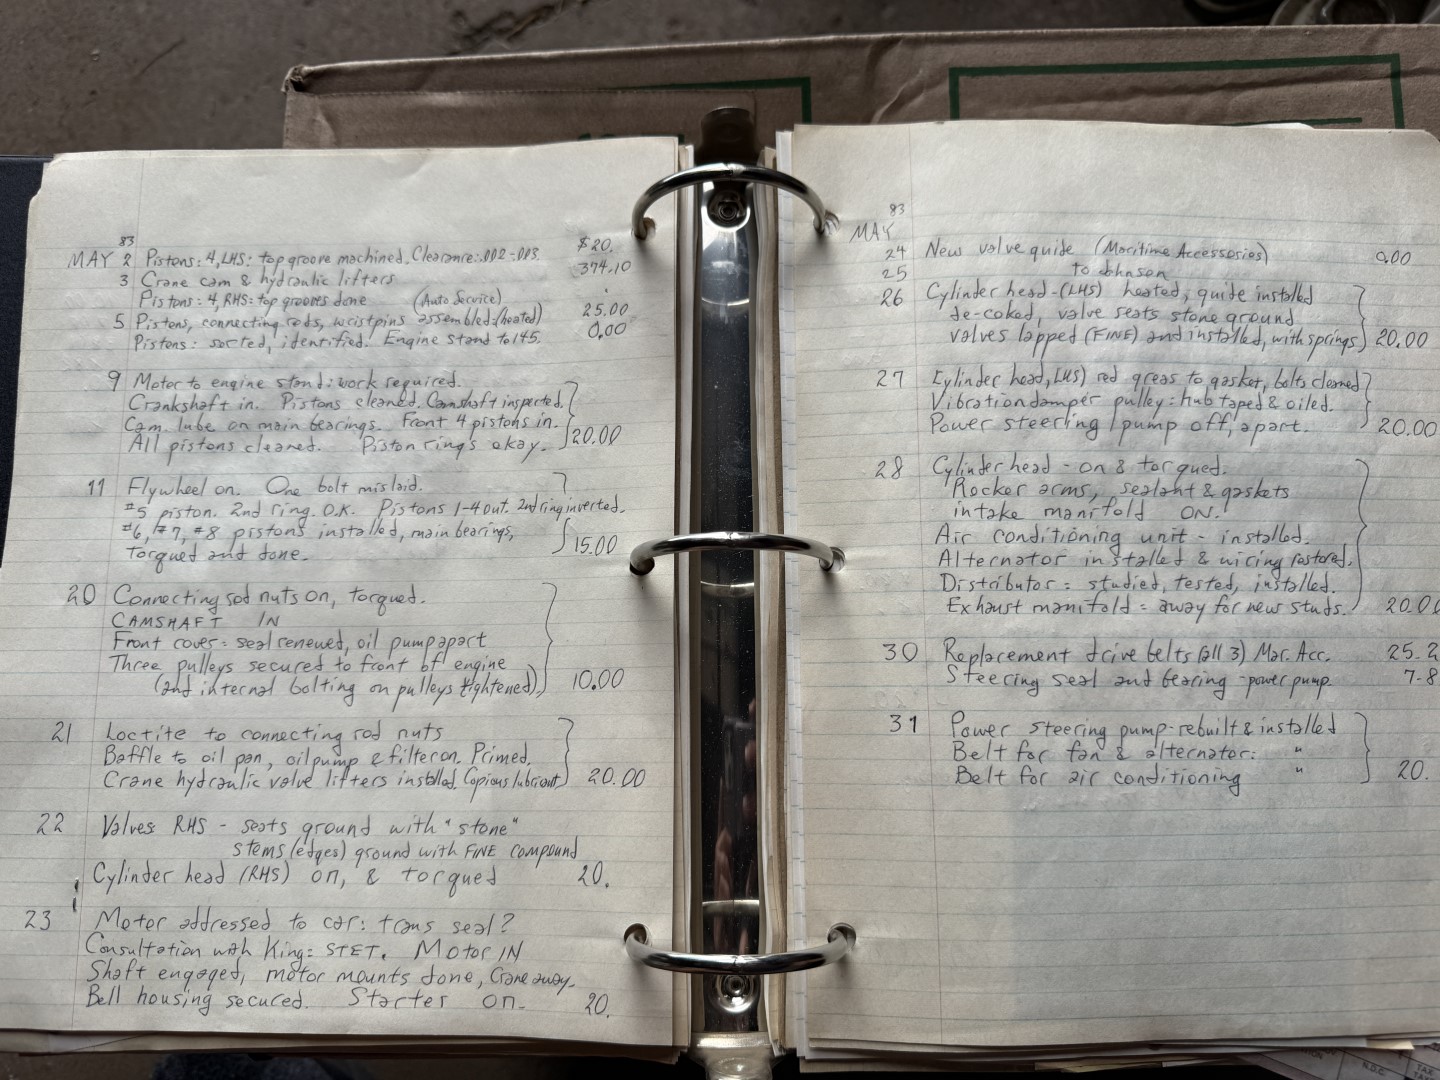 83
MAY 2 Pistons: 4, LHS: top groove machined. Clearance: .002-.003 $20.
3 Crane cam & hydraulic lifters 374.10
Pistons: 4, RHS: top grooves done (Auto Service)
5 Pistons, connecting rods, wristpins assembled (heated) 25.00
Pistons: sorted, identified. Engine stand to 145. 0.00
9 Motor to engine stand: work required.
Crankshaft in. Pistons cleaned. Camshaft inspected.
Cam lube on main bearings. Front 4 pistons in.
All pistons cleaned. Piston rings okay. 20.00
11 Flywheel on. One bolt mislaid.
#5 piston. 2nd ring. O.K. Pistons 1-4 out. 2nd ring inverted.
#6, #7, #8 pistons installed, main bearings,
torqued and done. 15.00
20 Connecting rod nuts on, torqued.
CAMSHAFT IN
Front cover: seal renewed, oil pump apart
Three pulleys secured to front of engine
(and internal bolting on pulleys tightened) 10.00
21 Loctite to connecting rod nuts
Baffle to oil pan, oil pump & filter on. Primed.
Crane hydraulic valve lifters installed. Copious lubricant 20.00
22 Valves RHS - seats ground with "stone"
stems (edges) ground with FINE COMPOUND
Cylinder head (RHS) on, & torqued 20.
23 Motor addressed to car: trans seal?
Consultation with King: STET. MOTOR IN
Shaft engaged, motor mounts done, Crane away.
Bell housing secured. Starter on. 20.
83
MAY
24 New valve guide (Maritime Accessories) 0.00
25 to Johnson
26 Cylinder head-(LHS) heated, guide installed
de-coked, valve seats stone ground
valves lapped (FINE) and installed, with springs 20.00
27 Cylinder head, LHS) red greas to gasket, bolts cleaned
Vibration damper pulley: hub taped & oiled.
Power steering pump off, apart. 20.00
28 Cylinder head - on & torqued.
Rocker arms, sealant & gaskets
intake manifold ON.
Air conditioning unit - installed.
Alternator installed & wiring restored.
Distributor: studied, tested, installed.
Exhaust manifold = away for new studs. 20.00
30 Replacement drive belts (all 3) Mar. Acc. 25.2
Steering seal and bearing - power pump. 7.8
31 Power steering pump-rebuilt & installed
Belt for fan & alternator: "
Belt for air conditioning " 20.
N.D.C.
TAX